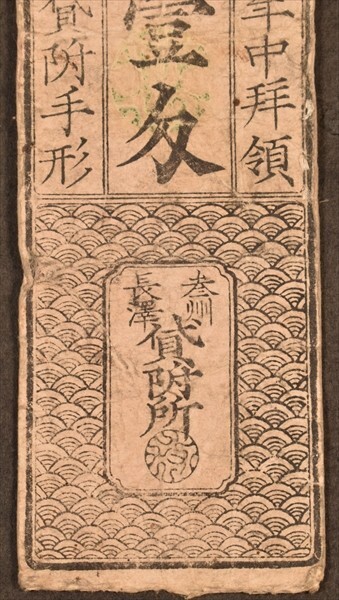 年中拜領
壹匁
貸附手形
叁州
長澤
貸附所